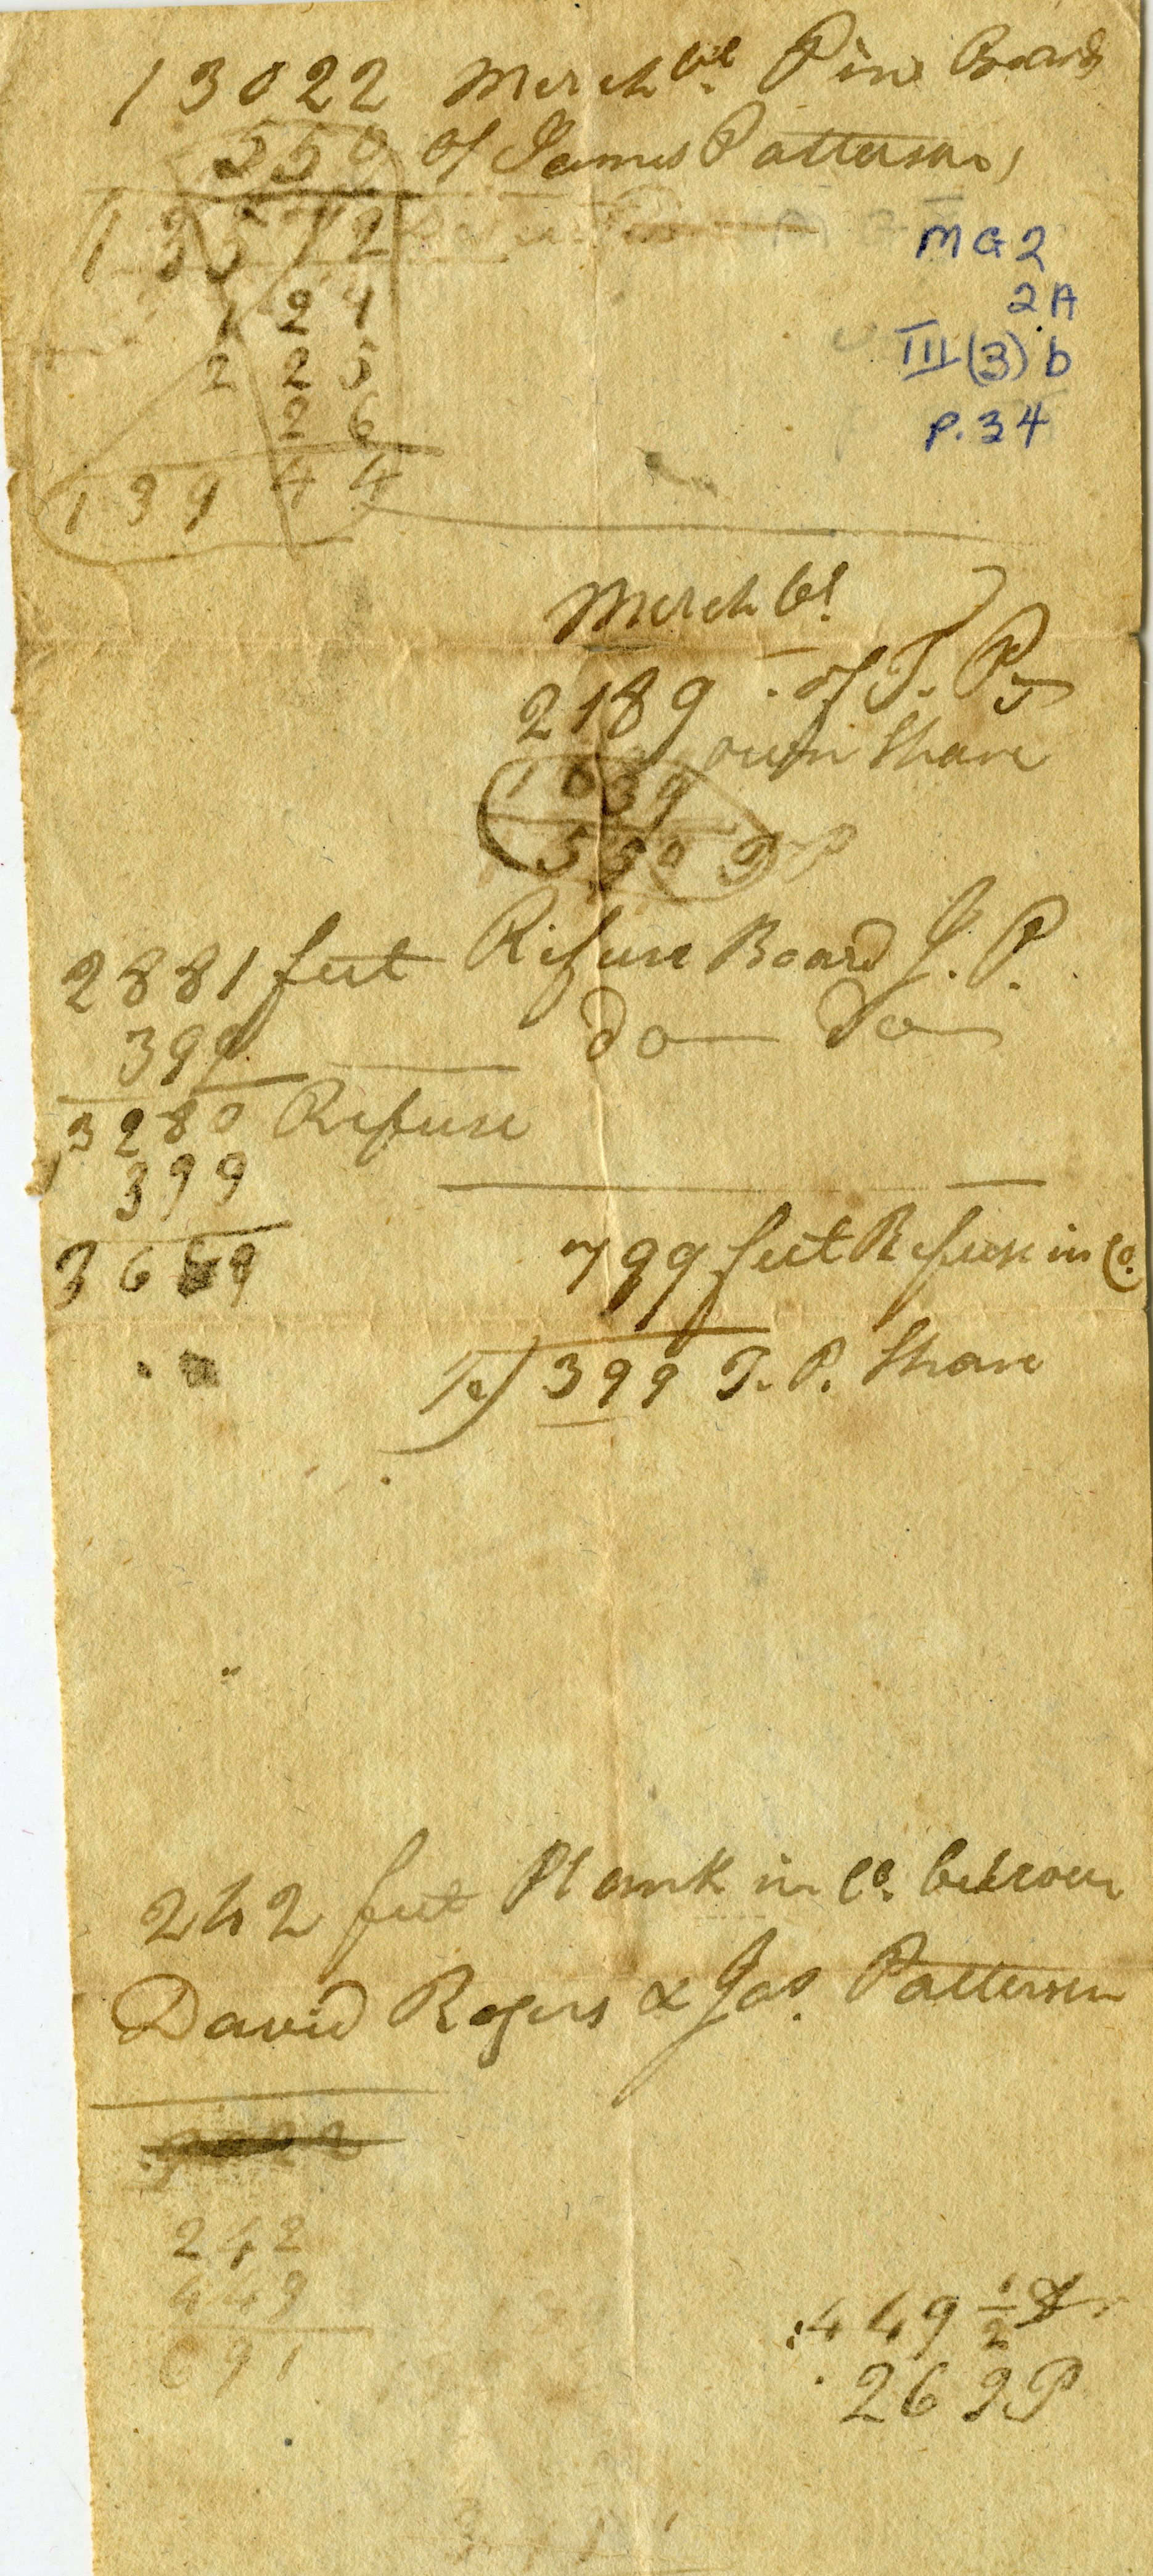 13022 Merchbl Pine Boards
550 of James Patterson
13572
124
225
26
13944
MG2
2A
III(3)b
P.34
Merchbl
2189 of J. P
own Share
1039
550 J P
2881 feet Refuse Board J. P.
399 do do
3280 Refuse
399
3689
799 feet Refuse in Co.
399 J. P. Share
242 feet Plank in Co. between
David Rogers & Jas. Patterson
242
449
691
449 1/2
269 P